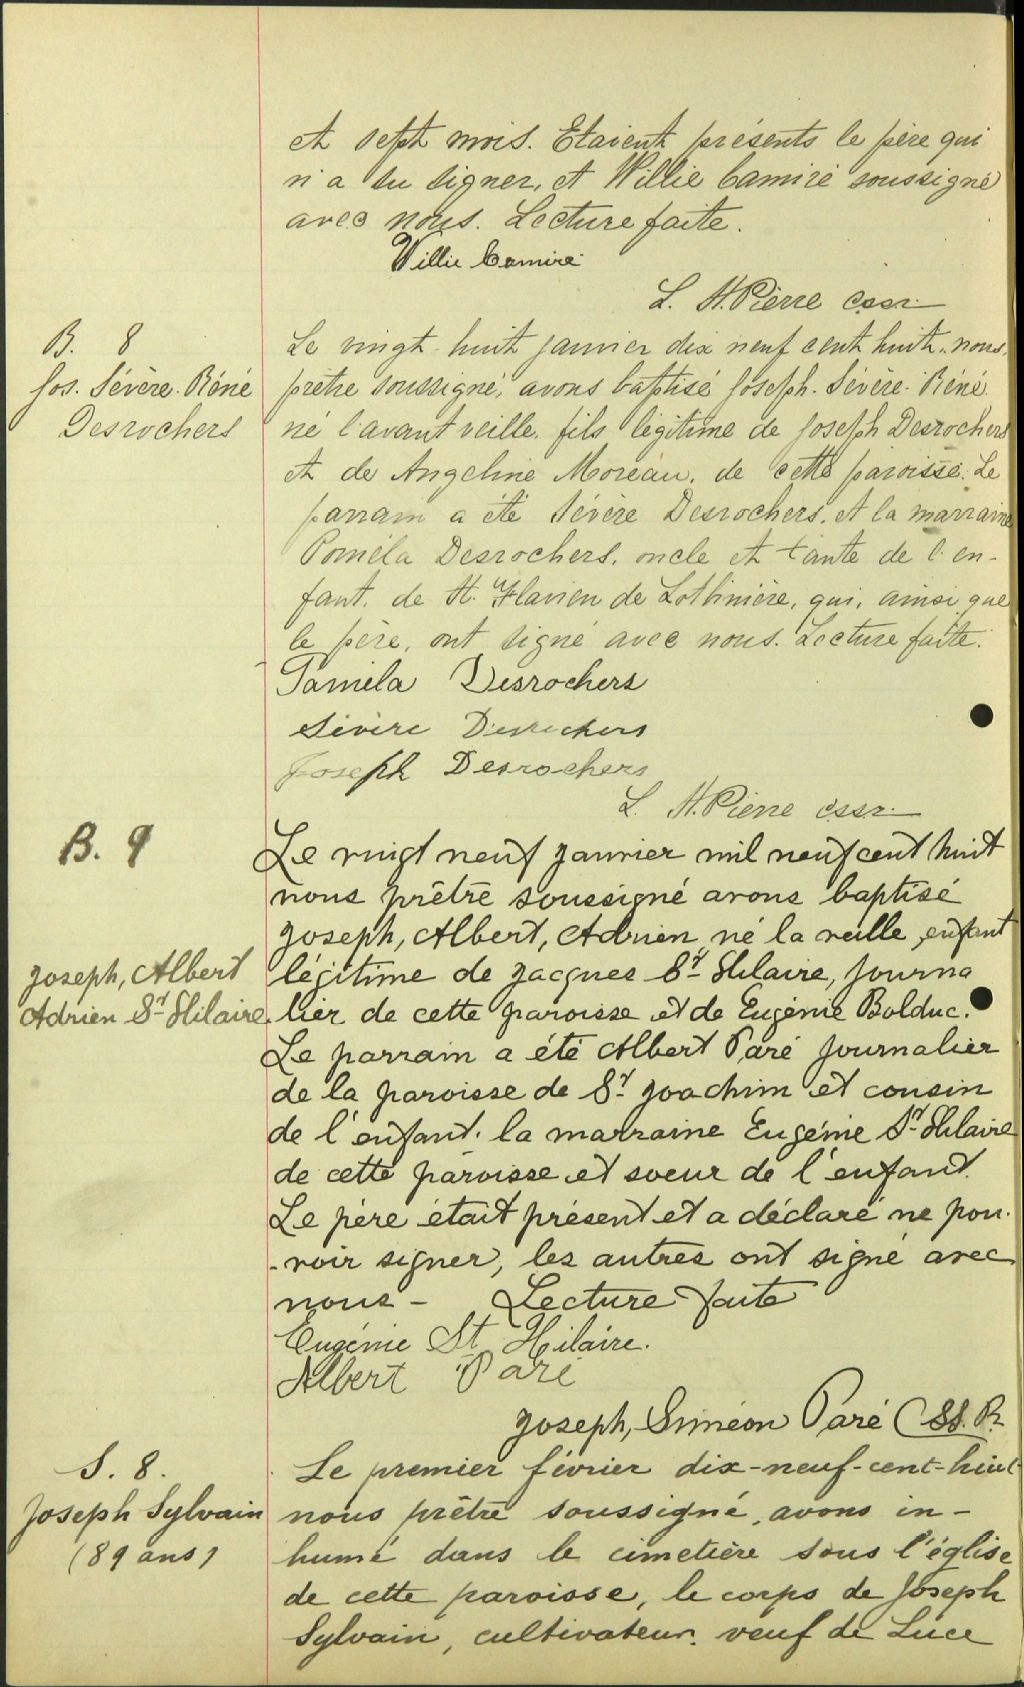 et sept mois. Etaient présents le père qui
n'a su signer, et Willie Camiré soussigné
avec nous. Lecture faite.
Willie Camiré
L. St. Pierre cssr.
B. 8
Jos. Sévère. Réné
Desrochers
Le vingt-huit janvier dix neuf cent huit, nous,
prêtre soussigné, avons baptisé Joseph. Sévère. Réné.
né l'avant veille, fils légitime de Joseph Desrochers
et de Angeline Moreau, de cette paroisse. Le
parrain a été Sévère Desrochers, et la marraine
Paméla Desrochers, oncle et tante de l'en-
fant, de St. Flavien de Lotbinière, qui, ainsi que
le père, ont signé avec nous. Lecture faite.
Paméla Desrochers
Sévère Desrochers
Joseph Desrochers
L. St. Pierre cssr.
B. 9
Joseph, Albert
Adrien St-Hilaire
Le vingt neuf janvier mil neuf cent huit
nous prêtre soussigné avons baptisé
Joseph, Albert, Adrien, né la veille, enfant
légitime de Jacques St-Hilaire, journa
lier de cette paroisse et de Eugénie Bolduc.
Le parrain a été Albert Paré journalier
de la paroisse de St-Joachim et cousin
de l'enfant. la marraine Eugénie St-Hilaire
de cette paroisse et soeur de l'enfant.
Le père était présent et a déclaré ne pou-
-voir signer, les autres ont signé avec
nous - Lecture faite
Eugénie St Hilaire.
Albert Paré
Joseph, Siméon Paré CSS.R.
S. 8.
Joseph Sylvain
(89 ans)
Le premier février dix-neuf-cent-huit
nous prêtre soussigné, avons in-
humé dans le cimetière sous l'église
de cette paroisse, le corps de Joseph
Sylvain, cultivateur, veuf de Luce